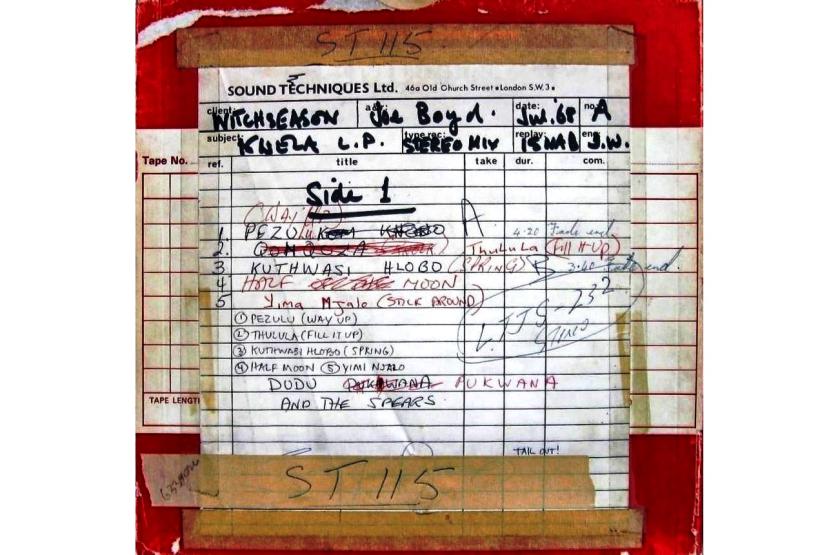 ST 115
SOUND TECHNIQUES Ltd. 46a Old Church Street • London S.W.3.
client: WITCHSEASON a&r: Joe Boyd. date: JAN.'69 no: A
subject: KWELA L.P. type rec: STEREO MIX replay: 15 NAB eng: J.W.
Tape No. ref. title take dur. com.
Side 1
(WAY UP) A
1. PEZULU 4.20 Fade end
2. Thulula (FILL IT UP)
3 KUTHWASI HLOBO (SPRING) B 3.40 Fade end.
4 HALF MOON
5 Yima Njalo (STICK AROUND)
① PEZULU (WAY UP)
② THULULA (FILL IT UP)
③ KUTHWASI HLOBO (SPRING)
④ HALF MOON ⑤ YIMI NJALO
STEREO
DUDU PUKWANA
AND THE SPEARS.
TAPE LENGTH
TAIL OUT!
ST 115